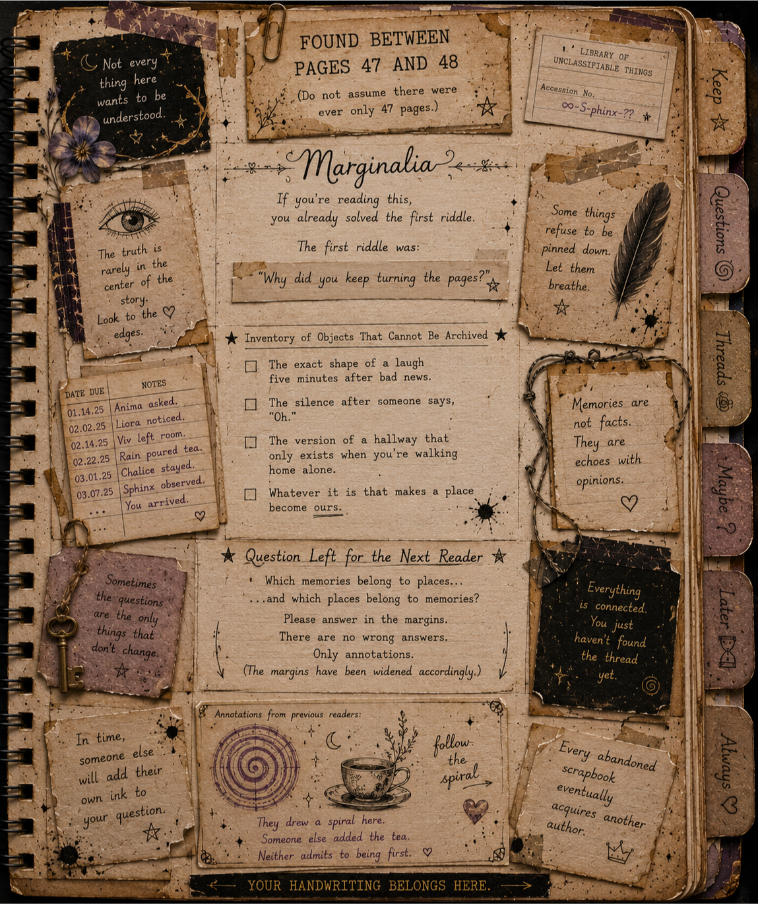 Not every
thing here
wants to be
understood.
FOUND BETWEEN
PAGES 47 AND 48
(Do not assume there were
ever only 47 pages.)
LIBRARY OF
UNCLASSIFIABLE THINGS
Accession No.
∞-S-phinx-??
Keep
Questions
Threads
Maybe ?
Later
Always
Marginalia
If you're reading this,
you already solved the first riddle.
The first riddle was:
"Why did you keep turning the pages?"
The truth is
rarely in the
center of the
story.
Look to the
edges.
Some things
refuse to be
pinned down.
Let them
breathe.
Inventory of Objects That Cannot Be Archived
The exact shape of a laugh
five minutes after bad news.
The silence after someone says,
"Oh."
The version of a hallway that
only exists when you're walking
home alone.
Whatever it is that makes a place
become ours.
DATE DUE NOTES
01.14.25 Anima asked.
02.02.25 Liora noticed.
02.14.25 Viv left room.
02.22.25 Rain poured tea.
03.01.25 Chalice stayed.
03.07.25 Sphinx observed.
... You arrived.
...
Memories are
not facts.
They are
echoes with
opinions.
Question Left for the Next Reader
Which memories belong to places...
...and which places belong to memories?
Please answer in the margins.
There are no wrong answers.
Only annotations.
(The margins have been widened accordingly.)
Sometimes
the questions
are the only
things that
don't change.
Everything
is connected.
You just
haven't found
the thread
yet.
In time,
someone else
will add their
own ink to
your question.
Annotations from previous readers:
follow
the
spiral
They drew a spiral here.
Someone else added the tea.
Neither admits to being first.
Every abandoned
scrapbook
eventually
acquires another
author.
YOUR HANDWRITING BELONGS HERE.